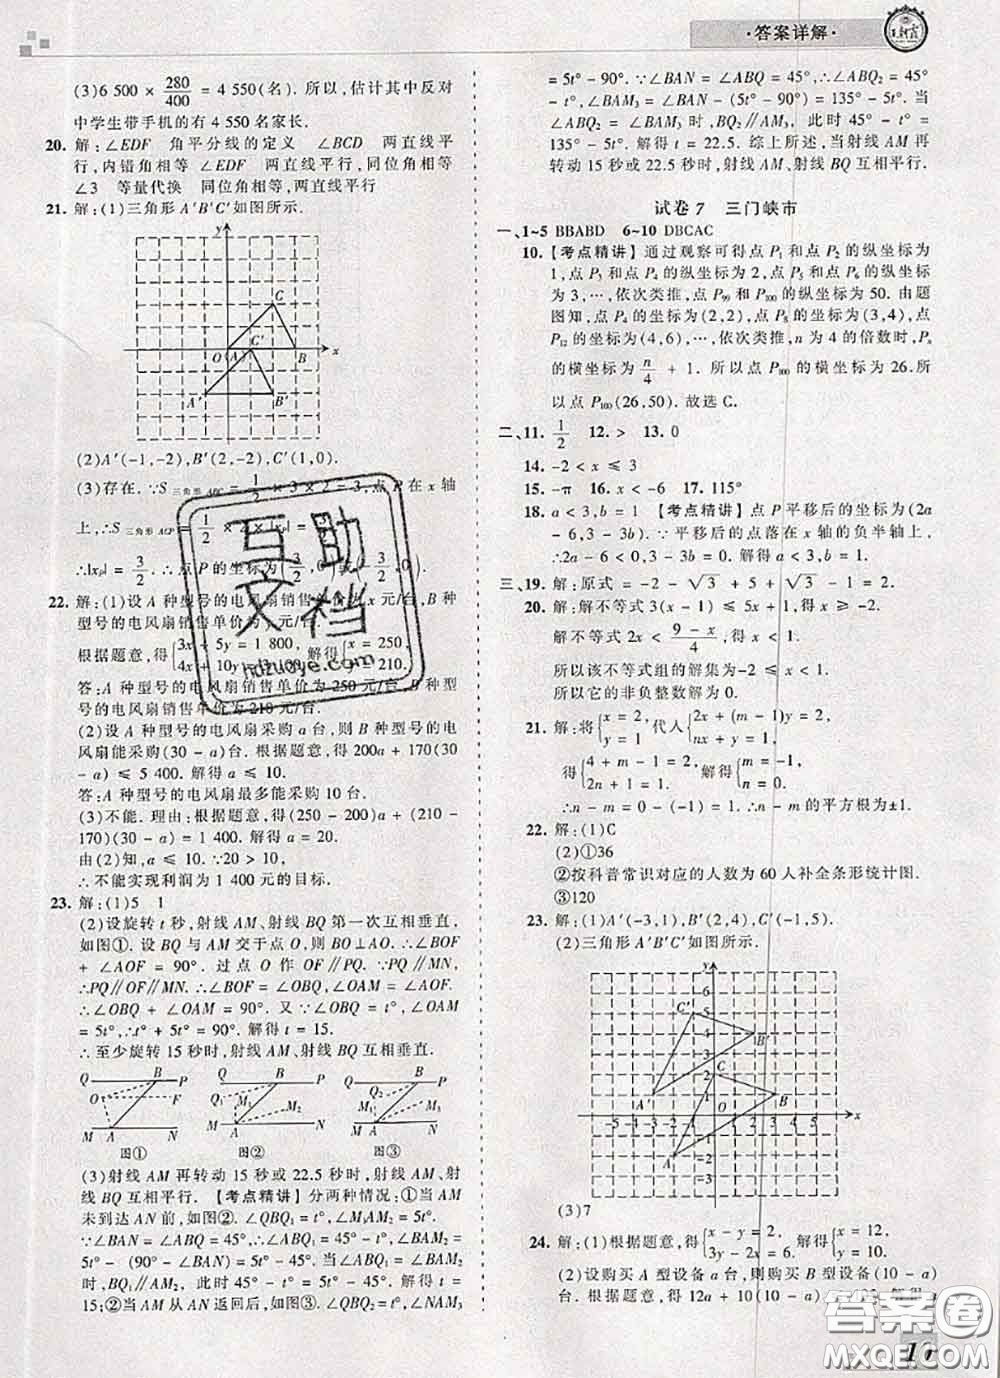 ·答案详解·
(3)6 500 × 280/400 = 4 550(名). 所以,估计其中反对
中学生带手机的有 4 550 名家长.
20. 解:∠EDF 角平分线的定义 ∠BCD 两直线平
行,内错角相等 ∠EDF 两直线平行,同位角相等
∠3 等量代换 同位角相等,两直线平行
21. 解:(1)三角形 A′B′C′如图所示.
y
C
C′
O A B x
A′ B′
(2)A′(-1,-2),B′(2,-2),C′(1,0).
(3)存在. ∵S三角形ABC = 1/2 × 3 × 2 = 3,点 P 在 x 轴
上,∴S三角形ACP = 1/2 × 2 × |xP| = 3/2.
∴|xP| = 3/2. ∴点 P 的坐标为(3/2,0)或(-3/2,0).
22. 解:(1)设 A 种型号的电风扇销售单价为 x 元/台,B 种
型号的电风扇销售单价为 y 元/台.
根据题意,得{3x + 5y = 1 800, 4x + 10y 解得{x = 250, 210.
答:A 种型号的电风扇销售单价为 250 元/台,B 种型
号的电风扇销售单价为 210 元/台.
(2)设 A 种型号的电风扇采购 a 台,则 B 种型号的电
风扇能采购(30 - a)台. 根据题意,得 200a + 170(30
- a) ≤ 5 400. 解得 a ≤ 10.
答:A 种型号的电风扇最多能采购 10 台.
(3)不能. 理由:根据题意,得(250 - 200)a + (210 -
170)(30 - a) = 1 400. 解得 a = 20.
由(2)知,a ≤ 10. ∵20 > 10,
∴不能实现利润为 1 400 元的目标.
23. 解:(1)5 1
(2)设旋转 t 秒,射线 AM、射线 BQ 第一次互相垂直,
如图①. 设 BQ 与 AM 交于点 O,则 BO⊥AO. ∴∠BOF
+ ∠AOF = 90°. 过点 O 作 OF∥PQ. ∵PQ∥MN,
∴PQ∥OF∥MN. ∴∠BOF = ∠OBQ,∠AOF = ∠OAM.
∴∠OBQ + ∠OAM = 90°. 又∵∠OBQ = t°,∠OAM
= 5t°,∴t° + 5t° = 90°. 解得 t = 15.
∴至少旋转 15 秒时,射线 AM、射线 BQ 互相垂直.
Q B P
O F
M A N
图①
图②
图③
(3)射线 AM 再转动 15 秒或 22.5 秒时,射线 AM、射
线 BQ 互相平行. 【考点精讲】分两种情况:①当 AM
未到达 AN 前,如图②. ∠QBQ₁ = t°,∠M₁AM₂ = 5t°.
∵∠BAN = ∠ABQ = 45°,∴∠ABQ₁ = 45° - t°,∠BAM₂
= 5t° - (90° - ∠BAN) = 5t° - 45°. 当∠ABQ₁ = ∠BAM₂
时,BQ₁∥AM₂, 此时 45° - t° = 5t° - 45°. 解得 t =
15;②当 AM 从 AN 返回后,如图③,∠QBQ₂ = t°,∠NAM₃
= 5t° - 90°. ∵∠BAN = ∠ABQ = 45°,∴∠ABQ₂ = 45°
- t°,∠BAM₃ = ∠BAN - (5t° - 90°) = 135° - 5t°. 当
∠ABQ₂ = ∠BAM₃时,BQ₂∥AM₃, 此时 45° - t° =
135° - 5t°. 解得 t = 22.5. 综上所述,当射线 AM 再
转动 15 秒或 22.5 秒时,射线 AM、射线 BQ 互相平行.
试卷 7 三门峡市
一、1~5 BBABD 6~10 DBCAC
10. 【考点精讲】通过观察可得点 P₁和点 P₂的纵坐标为
1,点 P₃和点 P₄的纵坐标为 2,点 P₅和点 P₆的纵坐标
为 3,…,依次类推,点 P₉₉和 P₁₀₀的纵坐标为 50. 由题
图知,点 P₄的坐标为(2,2),点 P₈的坐标为(3,4),点
P₁₂的坐标为(4,6),…,依次类推,n 为 4 的倍数时,Pₙ
的横坐标为 n/4 + 1. 所以点 P₁₀₀的横坐标为 26. 所
以点 P₁₀₀(26,50). 故选 C.
二、11. 1/2 12. > 13. 0
14. -2 < x ≤ 3
15. -π 16. x < -6 17. 115°
18. a < 3,b = 1 【考点精讲】点 P 平移后的坐标为(2a
- 6,3 - 3b). ∵平移后的点落在 x 轴的负半轴上,
∴2a - 6 < 0,3 - 3b = 0. 解得 a < 3,b = 1.
三、19. 解:原式 = -2 - √3 + 5 + √3 - 3 = 0.
20. 解:解不等式 3(x - 1) ≤ 5x + 1,得 x ≥ -2.
解不等式 2x < (9 - x)/4,得 x < 1.
所以该不等式组的解集为 -2 ≤ x < 1.
所以它的非负整数解为 0.
21. 解:将{x = 2, y = 1 代入{2x + (m - 1)y = 2, nx + y = 1,
得{4 + m - 1 = 2, 2n + 1 = 1. 解得{m = -1, n = 0.
∴n - m = 0 - (-1) = 1. ∴n - m 的平方根为±1.
22. 解:(1)C
(2)①36
②按科普常识对应的人数为 60 人补全条形统计图.
③120
23. 解:(1)A′(-3,1),B′(2,4),C′(-1,5).
(2)三角形 A′B′C′如图所示.
(3)7
24. 解:(1)根据题意,得{x - y = 2, 3y - 2x = 6. 解得{x = 12, y = 10.
(2)设购买 A 型设备 a 台,则购买 B 型设备(10 - a)
台. 根据题意,得 12a + 10(10 - a)
互助文档
hdzuoye.com
答案圈
MXQE.COM